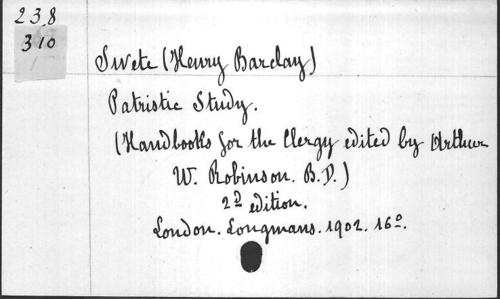 23.8
310
Swete (Henry Barclay)
Patristic Study.
(Handbooks for the Clergy edited by Arthur
W. Robinson. B.D.)
2d edition.
London. Longmans. 1902. 16o.